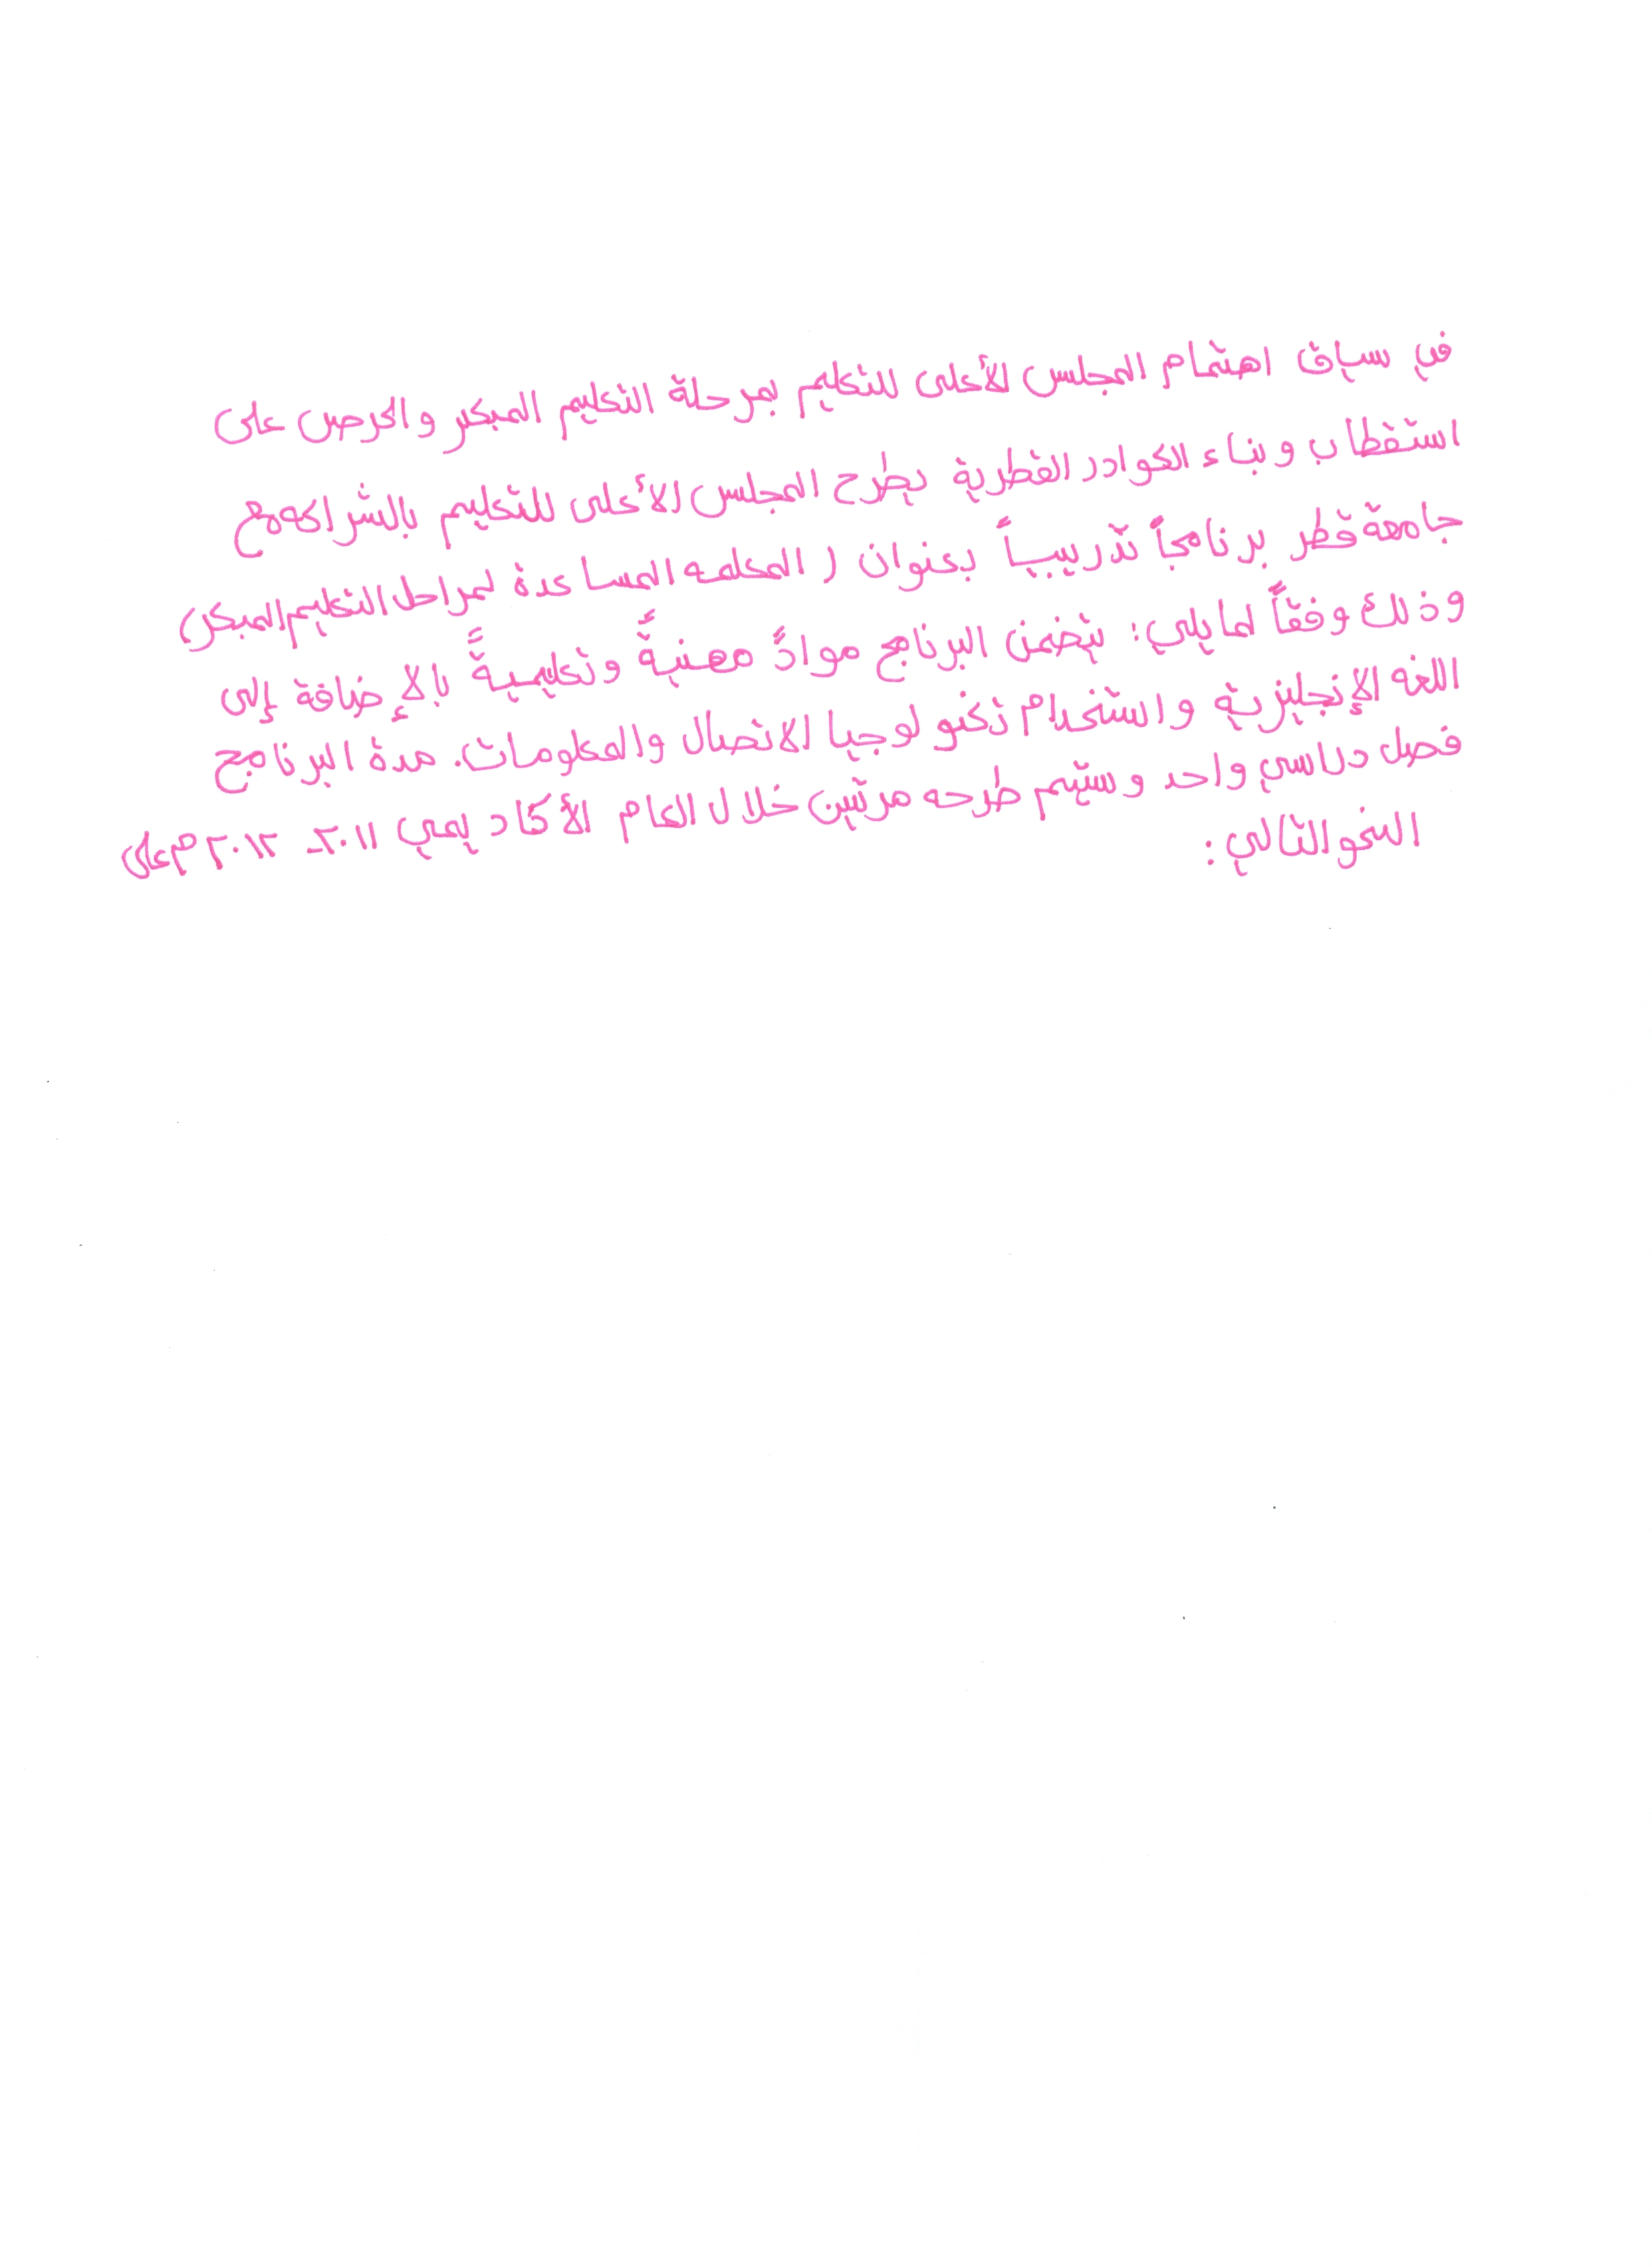 في سياق اهتمام المجلس الأعلى للتعليم بمرحلة التعليم المبكر والحرص على
استقطاب وبناء الكوادر القطرية يطرح المجلس الأعلى للتعليم بالشراكه مع
جامعة قطر برنامجاً تدريبياً بعنوان ( المعلمه المساعدة لمراحل التعليم المبكر)
وذلك وفقاً لما يلي: يتضمن البرنامج موادً مهنيةً وتعليميةً بالإضافة إلى
اللغه الإنجليزية واستخدام تكنولوجيا الاتصال والمعلومات. مدة البرنامج
فصل دراسي واحد وسيتم طرحه مرتين خلال العام الأكاديمي ٢٠١١ـ ٢٠١٢ م على
النحو التالي: